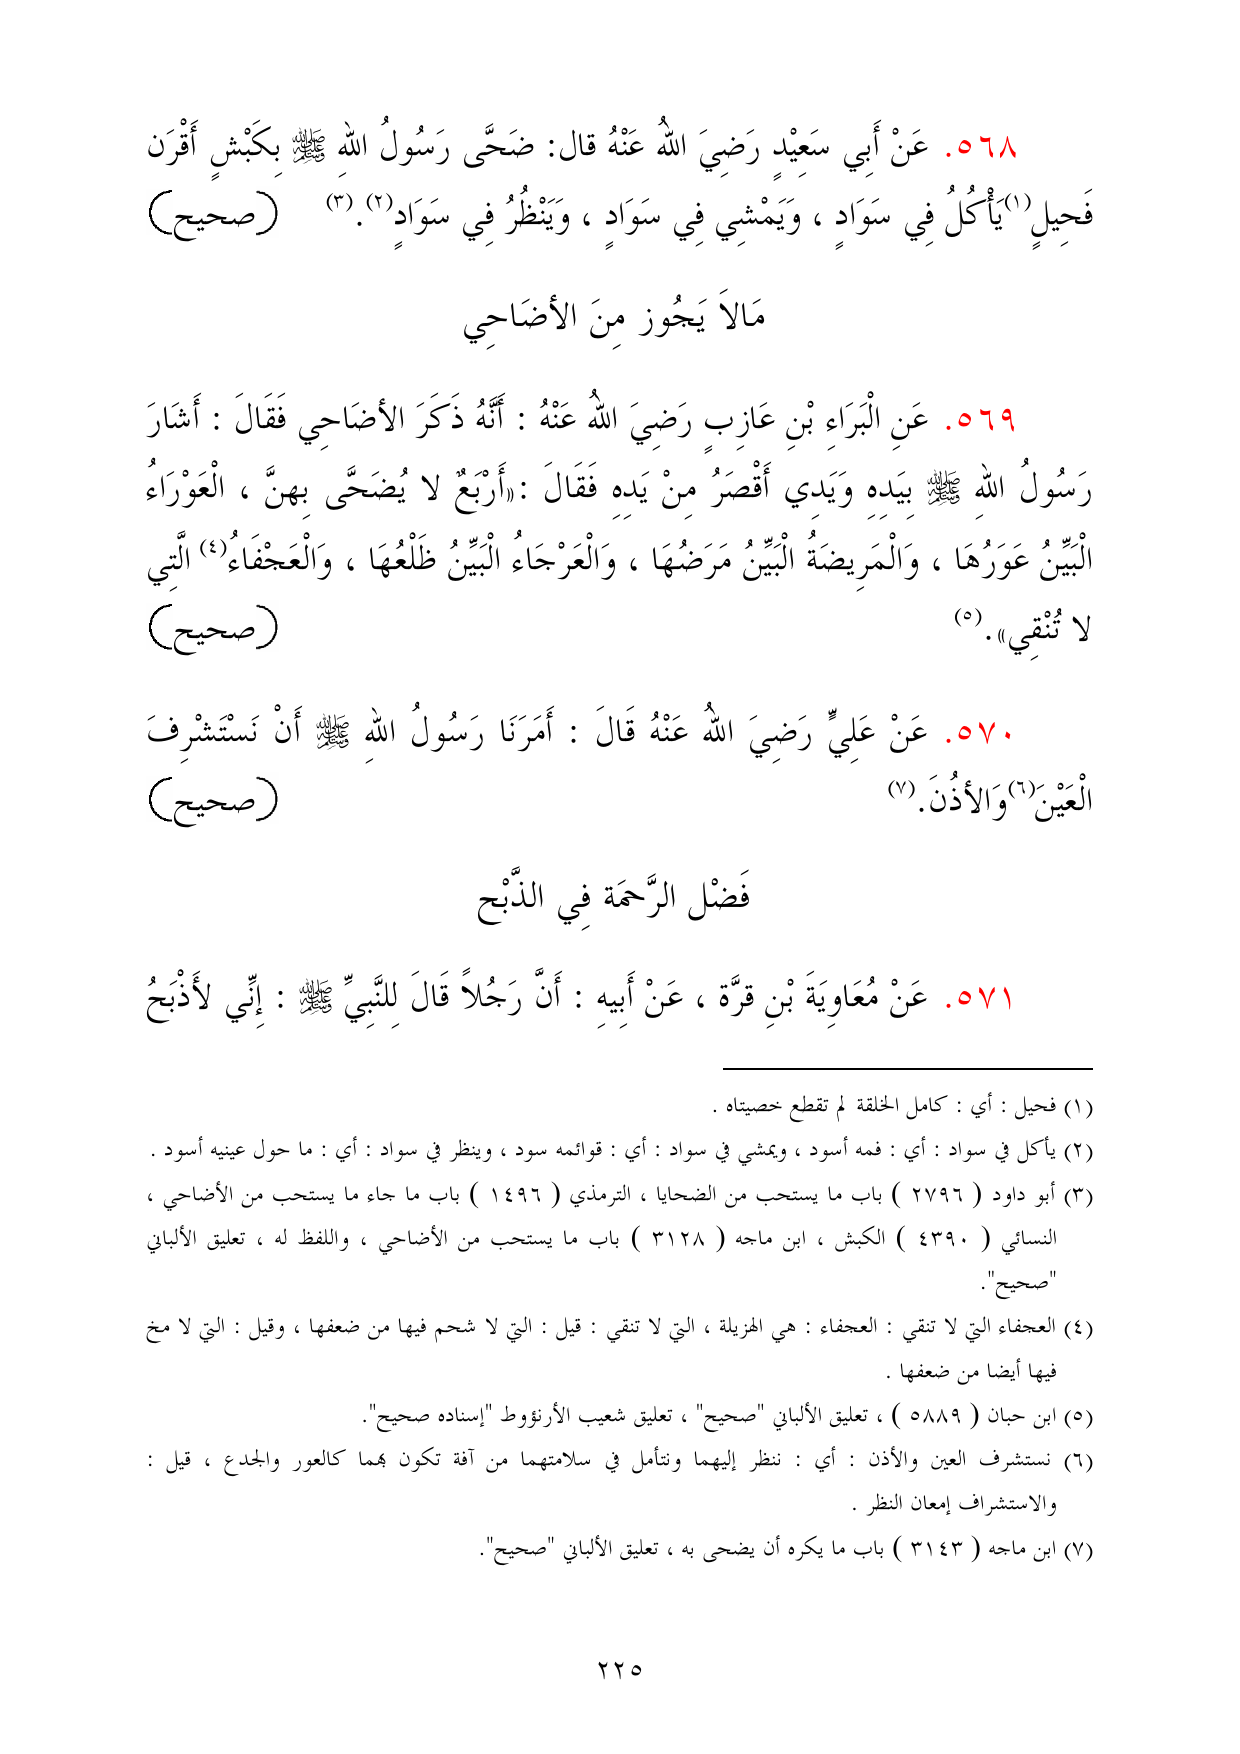 ٥٦٨. عَنْ أَبِي سَعِيْدٍ رَضِيَ اللهُ عَنْهُ قال: ضَحَّى رَسُولُ اللهِ ﷺ بِكَبْشٍ أَقْرَن
فَحِيلٍ(١)يَأْكُلُ فِي سَوَادٍ ، وَيَمْشِي فِي سَوَادٍ ، وَيَنْظُرُ فِي سَوَادٍ(٢).(٣) (صحيح)
مَالاَ يَجُوز مِنَ الأضَاحِي
٥٦٩. عَنِ الْبَرَاءِ بْنِ عَازِبٍ رَضِيَ اللهُ عَنْهُ : أَنَّهُ ذَكَرَ الأضَاحِي فَقَالَ : أَشَارَ
رَسُولُ اللهِ ﷺ بِيَدِهِ وَيَدِي أَقْصَرُ مِنْ يَدِهِ فَقَالَ :«أَرْبَعٌ لا يُضَحَّى بِهنَّ ، الْعَوْرَاءُ
الْبَيِّنُ عَوَرُهَا ، وَالْمَرِيضَةُ الْبَيِّنُ مَرَضُهَا ، وَالْعَرْجَاءُ الْبَيِّنُ ظَلْعُهَا ، وَالْعَجْفَاءُ(٤) الَّتِي
لا تُنْقِي».(٥) (صحيح)
٥٧٠. عَنْ عَلِيٍّ رَضِيَ اللهُ عَنْهُ قَالَ : أَمَرَنَا رَسُولُ اللهِ ﷺ أَنْ نَسْتَشْرِفَ
الْعَيْنَ(٦)وَالأذُنَ.(٧) (صحيح)
فَضْل الرَّحمَة فِي الذَّبْح
٥٧١. عَنْ مُعَاوِيَةَ بْنِ قرَّة ، عَنْ أَبِيهِ : أَنَّ رَجُلاً قَالَ لِلنَّبِيِّ ﷺ : إِنِّي لأَذْبَحُ
(١) فحيل : أي : كامل الخلقة لم تقطع خصيتاه .
(٢) يأكل في سواد : أي : فمه أسود ، ويمشي في سواد : أي : قوائمه سود ، وينظر في سواد : أي : ما حول عينيه أسود .
(٣) أبو داود ( ٢٧٩٦ ) باب ما يستحب من الضحايا ، الترمذي ( ١٤٩٦ ) باب ما جاء ما يستحب من الأضاحي ،
النسائي ( ٤٣٩٠ ) الكبش ، ابن ماجه ( ٣١٢٨ ) باب ما يستحب من الأضاحي ، واللفظ له ، تعليق الألباني
"صحيح".
(٤) العجفاء التي لا تنقي : العجفاء : هي الهزيلة ، التي لا تنقي : قيل : التي لا شحم فيها من ضعفها ، وقيل : التي لا مخ
فيها أيضا من ضعفها .
(٥) ابن حبان ( ٥٨٨٩ ) ، تعليق الألباني "صحيح" ، تعليق شعيب الأرنؤوط "إسناده صحيح".
(٦) نستشرف العين والأذن : أي : ننظر إليهما ونتأمل في سلامتهما من آفة تكون بهما كالعور والجدع ، قيل :
والاستشراف إمعان النظر .
(٧) ابن ماجه ( ٣١٤٣ ) باب ما يكره أن يضحى به ، تعليق الألباني "صحيح".
٢٢٥